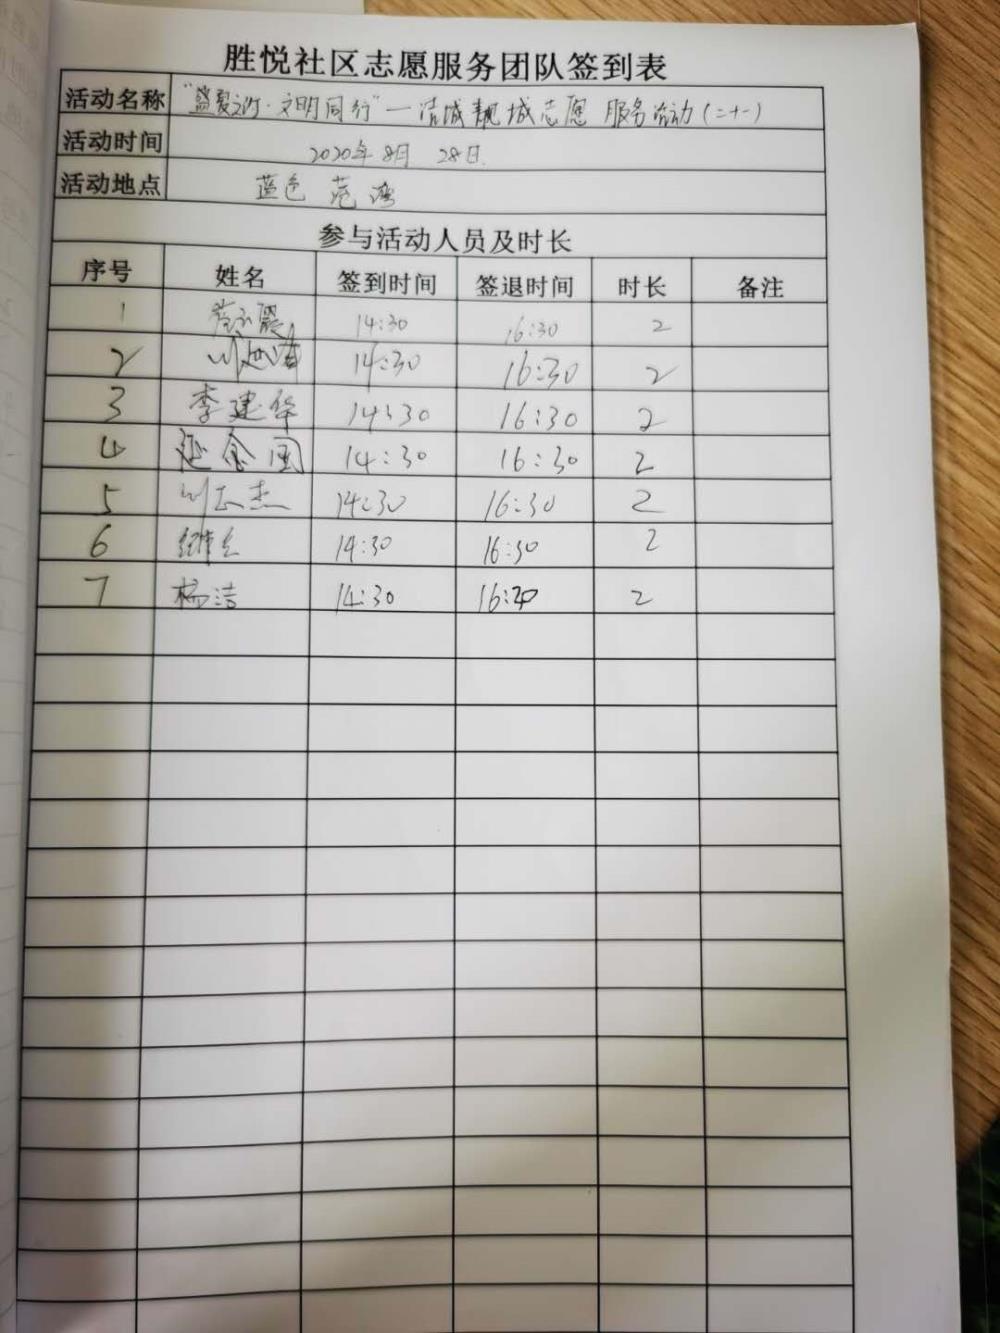 胜悦社区志愿服务团队签到表
活动名称 "盛夏之约·文明同行"—洁城靓城志愿服务活动(二十一)
活动时间 2020年8月28日
活动地点 蓝色 湾
参与活动人员及时长
序号 姓名 签到时间 签退时间 时长 备注
1 14:30 16:30 2
2 14:30 16:30 2
3 李建华 14:30 16:30 2
4 延金国 14:30 16:30 2
5 14:30 16:30 2
6 14:30 16:30 2
7 杨洁 14:30 16:30 2